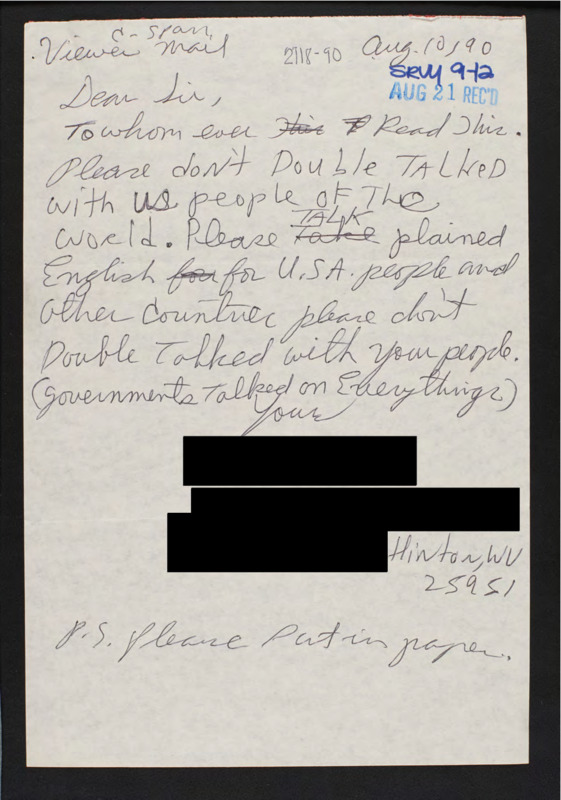 C-Span,
Viewer Mail
2718-90
Aug. 10, 90
SRVY 9-12
AUG 21 REC'D
Dear Sir,
To whom ever This Read This.
Please don't Double TALKED
with us people of The
World. Please Take TALK plained
English for for U.S.A. people and
other countries please don't
Double Talked with your people.
(Governments Talked on Everythings)
Yours
Hinton, WV
25951
P.S. please Put in paper.